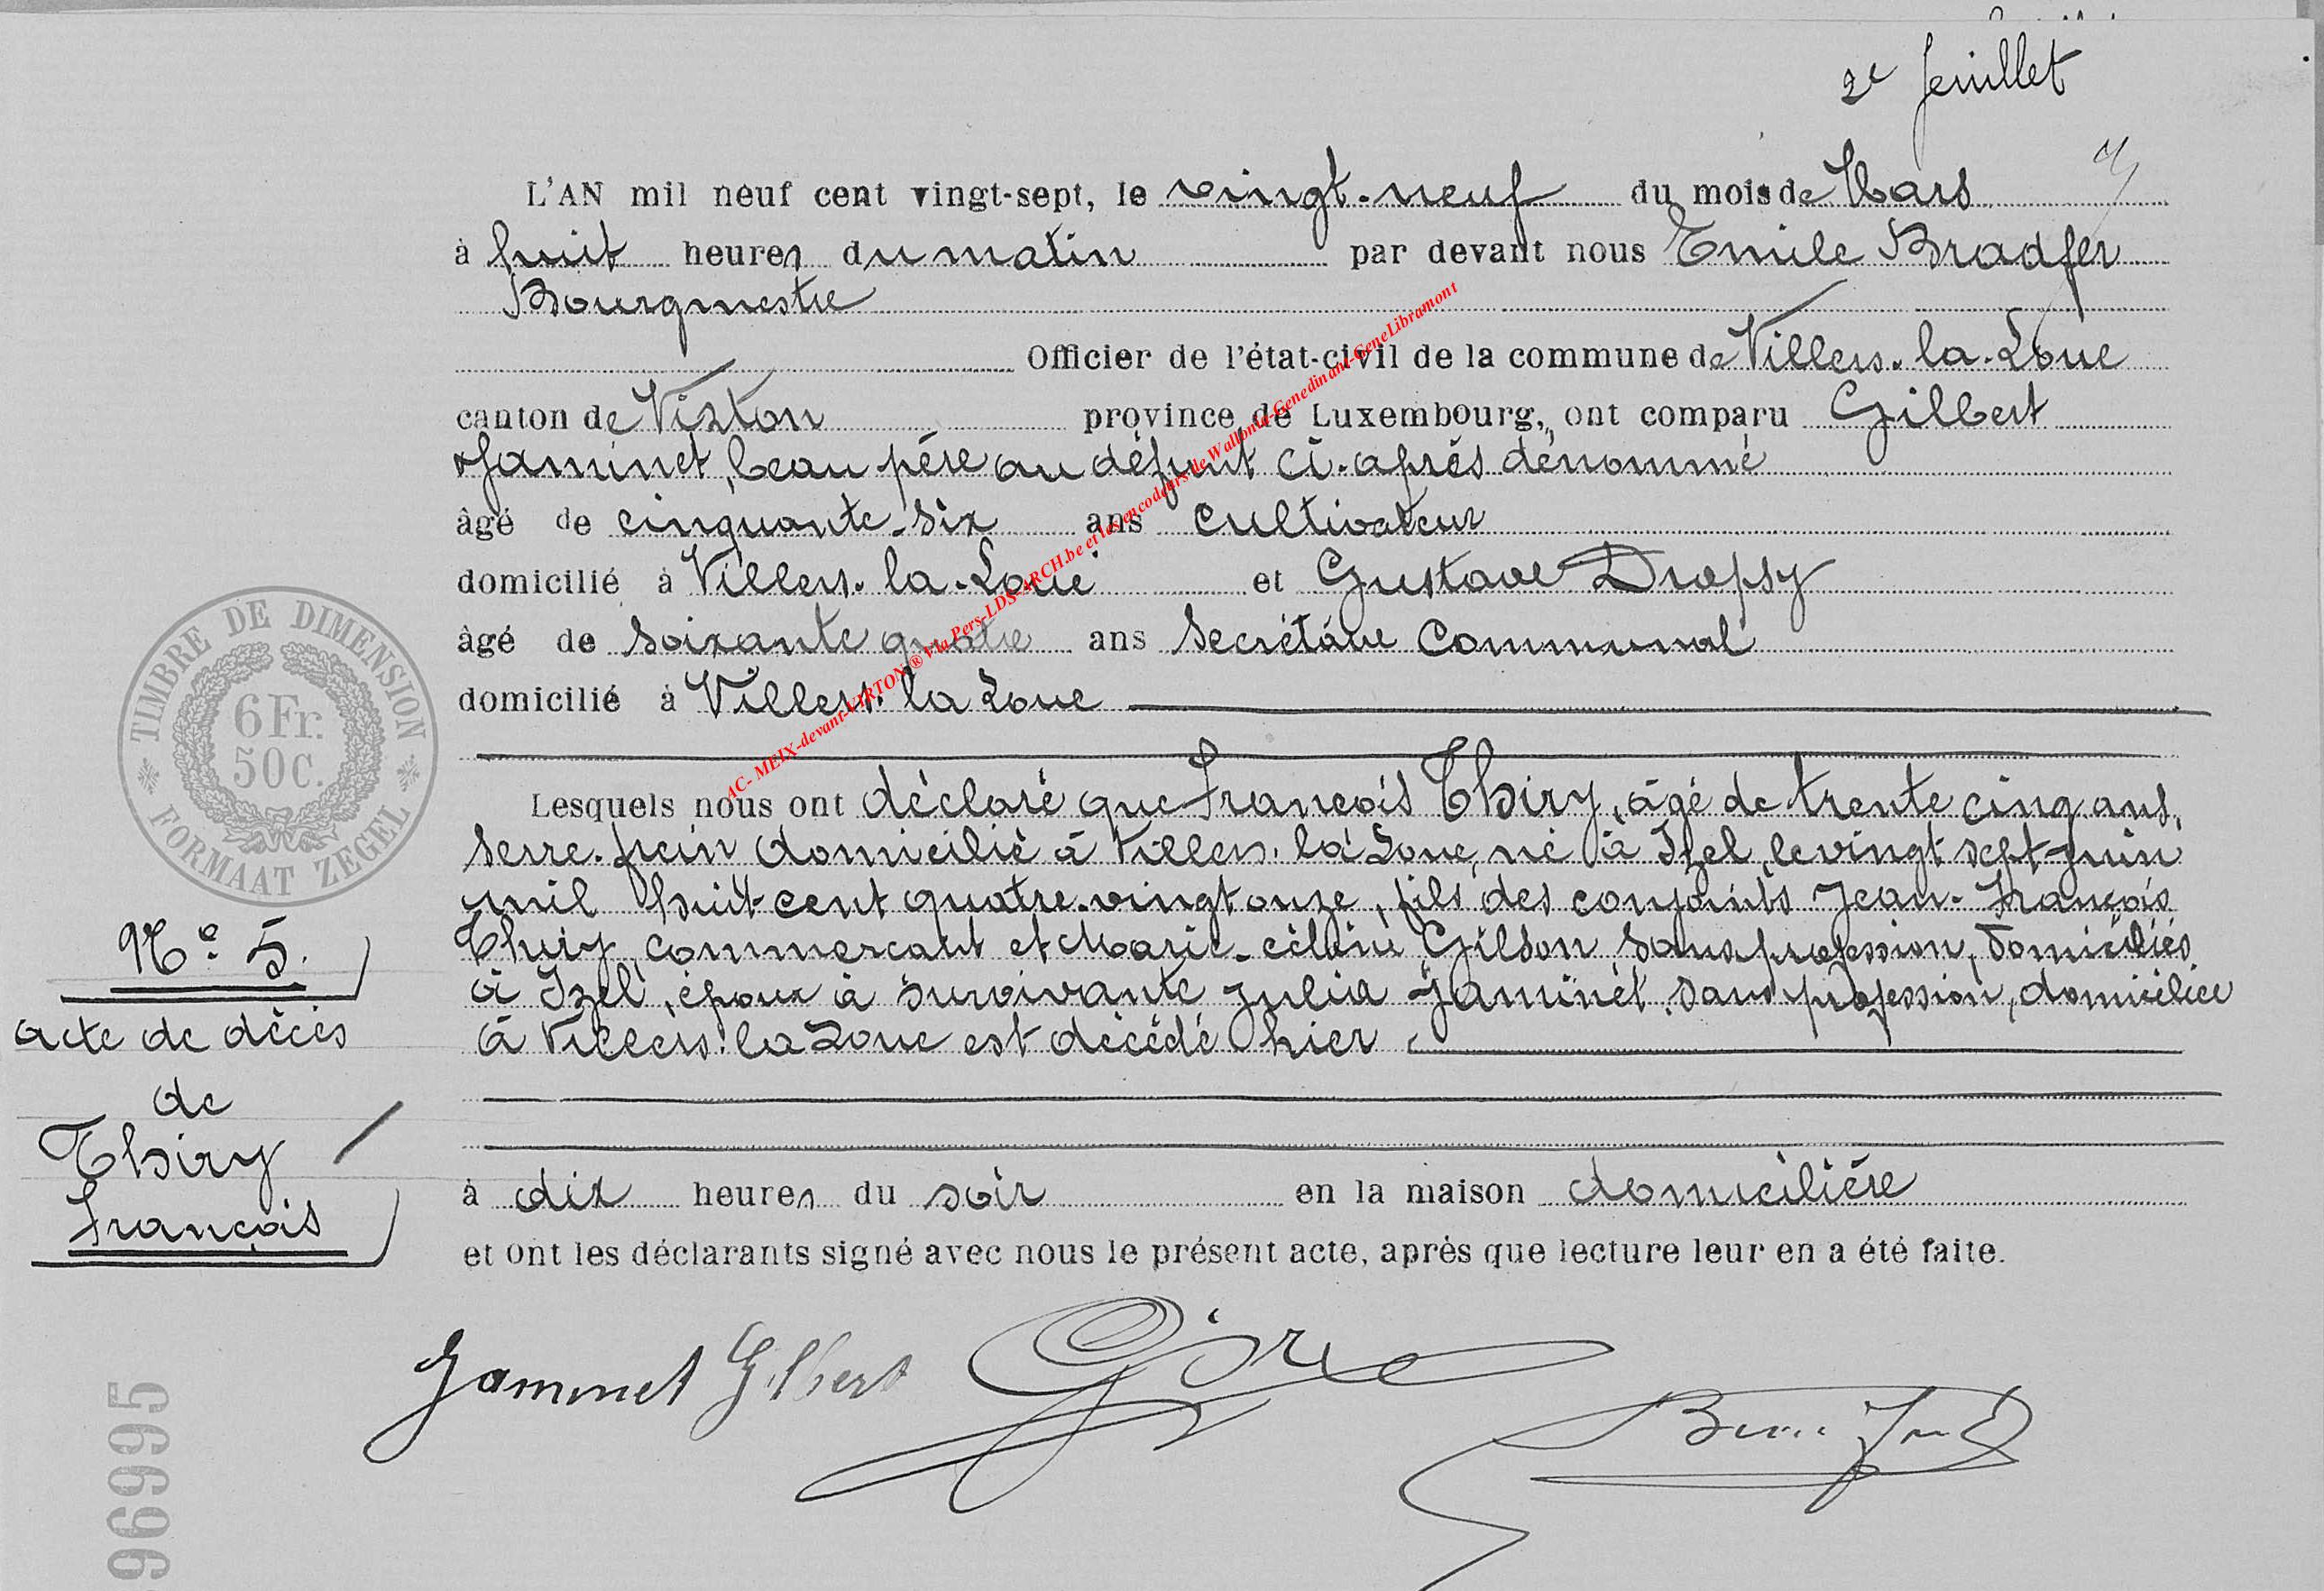 2e feuillet
L'AN mil neuf cent vingt-sept, le vingt-neuf du mois de Mars
à huit heures du matin par devant nous Emile Bradfer
Bourgmestre
Officier de l'état-civil de la commune de Villers-la-Loue
canton de Virton province de Luxembourg, ont comparu Gilbert
Jaminet, beau père au défunt ci-après dénommé
âgé de cinquante-six ans cultivateur
domicilié à Villers-la-Loue et Gustave Dropsy
âgé de soixante quatre ans secrétaire communal
domicilié à Villers-la Loue
Lesquels nous ont déclaré que François Thiry, âgé de trente cinq ans,
serre-frein domicilié à Villers-la Loue, né à Izel, le vingt sept juin
mil huit cent quatre-vingt onze, fils des conjoints Jean-François
Thiry, commercant et Marie-céline Gilson sans profession, domiciliés
à Izel, époux à survivante Julia Jaminet sans profession, domiciliée
à Villers-la Loue est décédé hier
à dix heures du soir en la maison domicilière
et ont les déclarants signé avec nous le présent acte, après que lecture leur en a été faite.
Jaminet Gilbert
TIMBRE DE DIMENSION
6 Fr.
50 C.
FORMAAT ZEGEL
No 5.
acte de décès
de
Thiry
François
96995
AC- MEIX-devant-VIRTON ® Via Pers-LDS-ARCH.be et les encodeurs de Wallonia-Genedinant-GeneLibramont